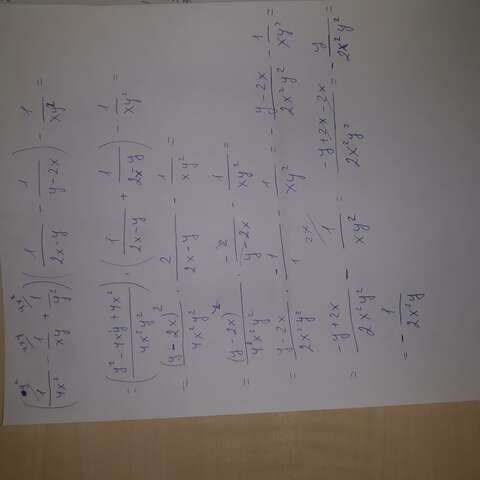 (1/4x² - 1/xy + 1/y²)(1/2x-y - 1/y-2x) - 1/xy² =
= (y²-4xy+4x²/4x²y²)·(1/2x-y + 1/2x-y) - 1/xy² =
= (y-2x)²/4x²y² · 2/2x-y - 1/xy² =
= (y-2x)²/4x²y² · -2/y-2x - 1/xy² =
= y-2x/2x²y² · -1/1 - 1/xy² = - y-2x/2x²y² - 1/xy² =
= -y+2x/2x²y² - 1/xy² = -y+2x-2x/2x²y² = - y/2x²y² =
= - 1/2x²y